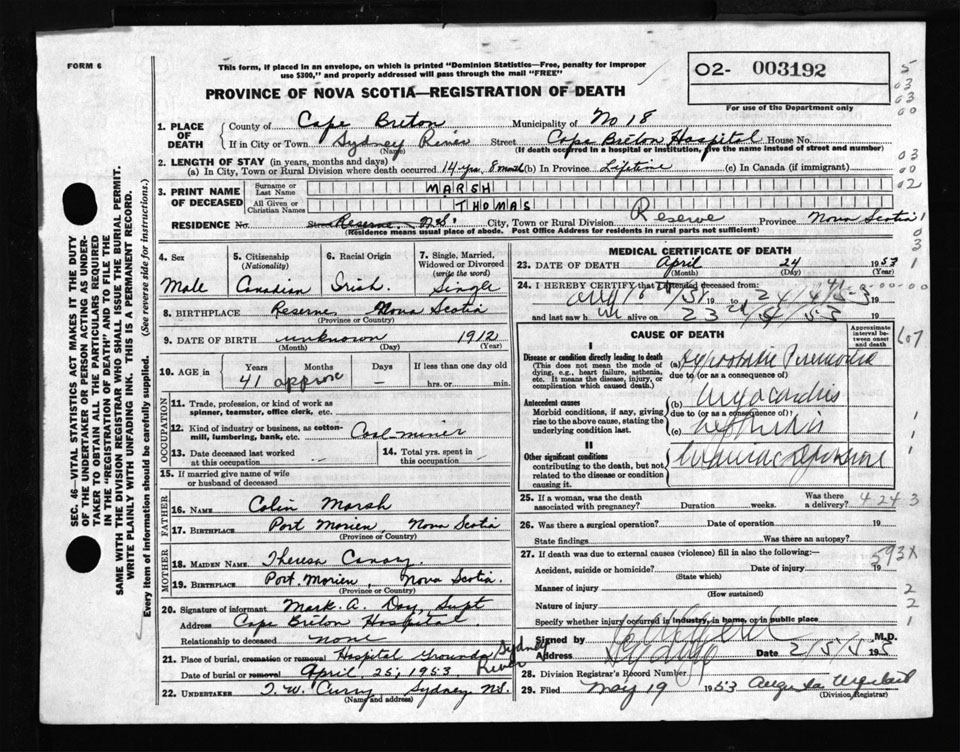 FORM 6
This form, if placed in an envelope, on which is printed "Dominion Statistics—Free, penalty for improper
use $300," and properly addressed will pass through the mail "FREE"
PROVINCE OF NOVA SCOTIA—REGISTRATION OF DEATH
02- 003192
For use of the Department only
1. PLACE OF DEATH
County of Cape Breton Municipality of No 18
If in City or Town Sydney River Street Cape Breton Hospital House No.
(Name) (If death occurred in a hospital or institution, give the name instead of street and number)
2. LENGTH OF STAY (in years, months and days)
(a) In City, Town or Rural Division where death occurred 14 yrs. 8 month (b) In Province Lifetime (c) In Canada (if immigrant)
3. PRINT NAME OF DECEASED
Surname or Last Name MARSH
All Given or Christian Names THOMAS
RESIDENCE No. Street Reserve N.S. City, Town or Rural Division Reserve Province Nova Scotia
(Residence means usual place of abode. Post Office Address for residents in rural parts not sufficient)
4. Sex
Male
5. Citizenship
(Nationality)
Canadian
6. Racial Origin
Irish
7. Single, Married, Widowed or Divorced
(write the word)
Single
8. BIRTHPLACE Reserve Nova Scotia
(Province or Country)
9. DATE OF BIRTH unknown 1912
(Month) (Day) (Year)
10. AGE in Years Months Days If less than one day old
41 approx — hrs. or min.
OCCUPATION
11. Trade, profession, or kind of work as
spinner, teamster, office clerk, etc.
12. Kind of industry or business, as cotton-
mill, lumbering, bank, etc. Coal miner
13. Date deceased last worked
at this occupation
14. Total yrs. spent in
this occupation
15. If married give name of wife
or husband of deceased
FATHER
16. NAME Colin Marsh
17. BIRTHPLACE Port Morien, Nova Scotia
(Province or Country)
MOTHER
18. MAIDEN NAME Theresa
19. BIRTHPLACE Port Morien, Nova Scotia.
(Province or Country)
20. Signature of informant Mark. A. Day, Supt
Address Cape Breton Hospital.
Relationship to deceased none
21. Place of burial, cremation or removal Hospital Grounds Sydney River
Date of burial or removal April, 25, 1953
22. UNDERTAKER T. W. Curry, Sydney N.S.
(Name and address)
MEDICAL CERTIFICATE OF DEATH
23. DATE OF DEATH April 24 1953
(Month) (Day) (Year)
24. I HEREBY CERTIFY that I attended deceased from:
19 to 19
and last saw h alive on 23 19
CAUSE OF DEATH
Approximate interval between onset and death
I
Disease or condition directly leading to death
(This does not mean the mode of dying, e.g., heart failure, asthenia, etc. It means the disease, injury, or complication which caused death.)
(a) Hypostatic Pneumonia
due to (or as a consequence of)
Antecedent causes
Morbid conditions, if any, giving rise to the above cause, stating the underlying condition last.
(b) Myocarditis
due to (or as a consequence of)
(c) Nephritis
II
Other significant conditions
contributing to the death, but not related to the disease or condition causing it.
25. If a woman, was the death
associated with pregnancy? Duration weeks. Was there a delivery?
4 24 3
26. Was there a surgical operation? Date of operation 19
State findings Was there an autopsy?
27. If death was due to external causes (violence) fill in also the following:—
593X
Accident, suicide or homicide? Date of injury 19
(State which)
Manner of injury
(How sustained)
Nature of injury
Specify whether injury occurred in industry, in home, or in public place
Signed by M.D.
Address Sydney Date
28. Division Registrar's Record Number
29. Filed May 19 1953 Augusta
(Division Registrar)
SEC. 46—VITAL STATISTICS ACT MAKES IT THE DUTY
OF THE UNDERTAKER OR PERSON ACTING AS UNDER-
TAKER TO OBTAIN ALL THE PARTICULARS REQUIRED
IN THE "REGISTRATION OF DEATH" AND TO FILE THE
SAME WITH THE DIVISION REGISTRAR WHO SHALL ISSUE THE BURIAL PERMIT.
WRITE PLAINLY WITH UNFADING INK. THIS IS A PERMANENT RECORD.
Every item of information should be carefully supplied. (See reverse side for instructions.)